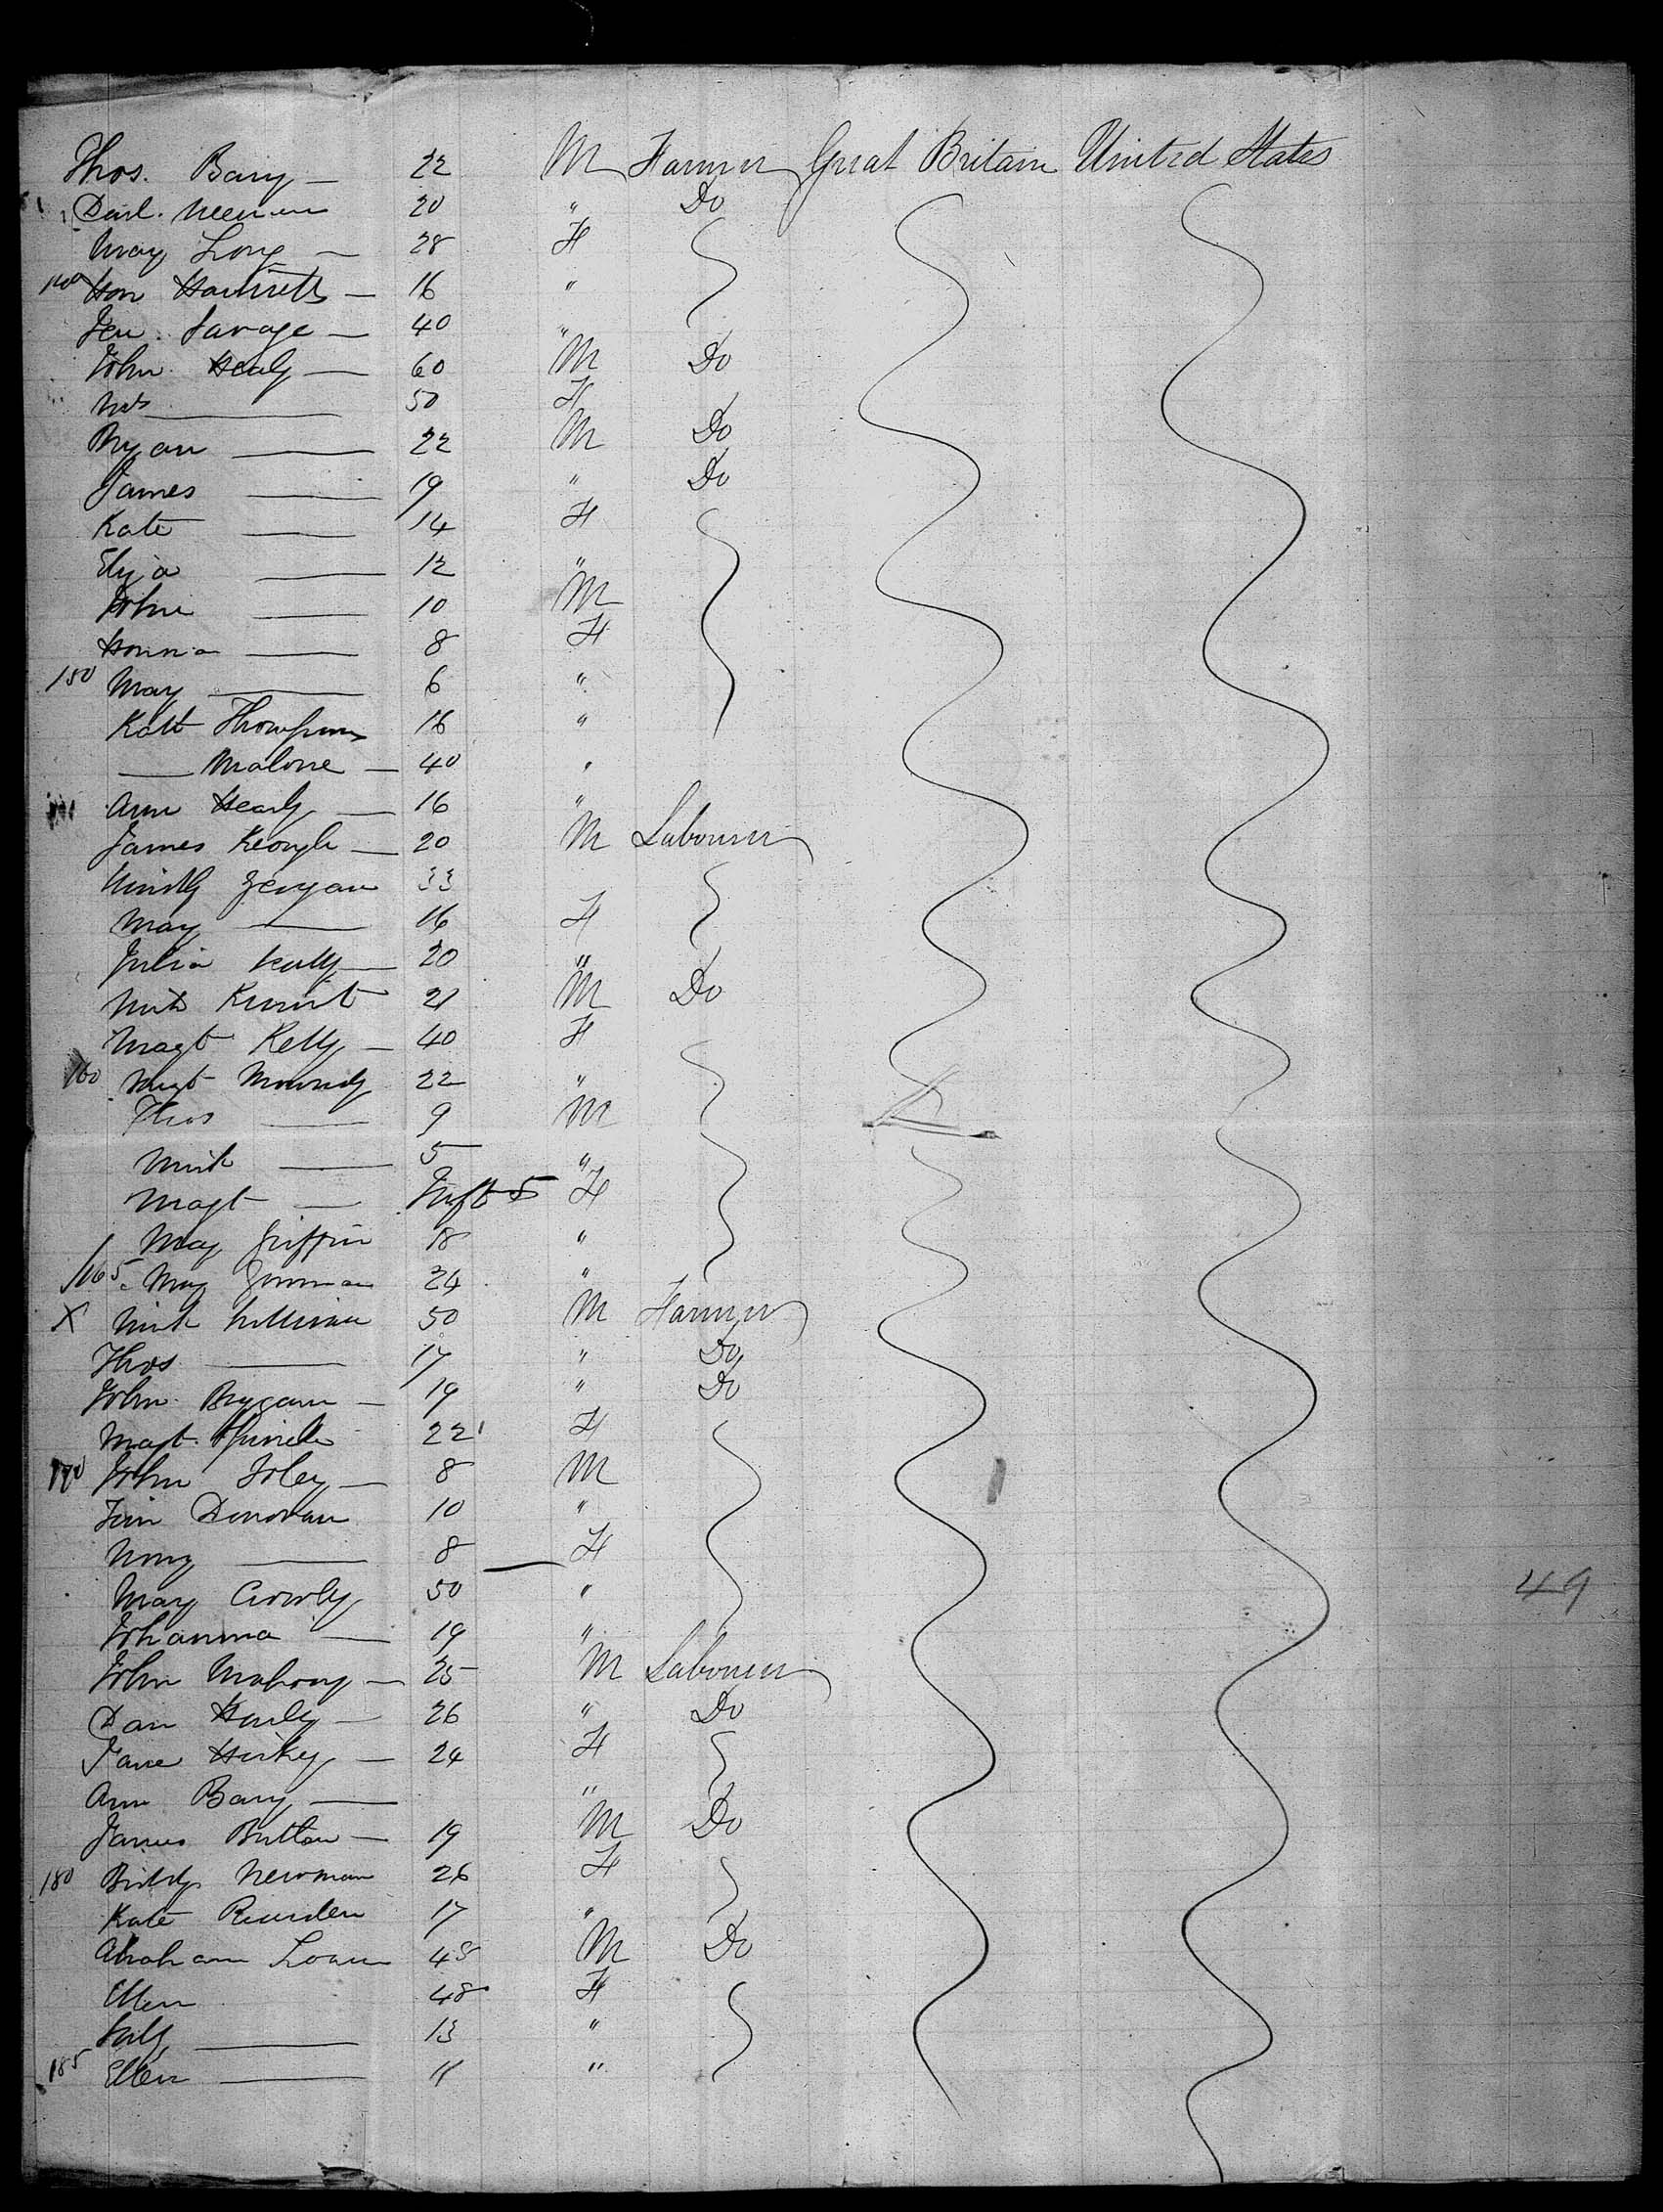 Thos. Barry — 22 M Farmer Great Britain United States
Danl. 20 " Do
Mary Long — 28 F
140 Hon — 16 "
Jer. Savage — 40 "
John Healy — 60 M Do
Mrs — 50 F
Bryan — 22 M Do
James — 19 " Do
Kate — 14 F
Eliza — 12 "
John — 10 M
Honna — 8 F
150 Mary — 6 "
Kate Thompson 16 "
— Malone — 40 "
Ann Healy — 16 "
James Keough — 20 M Labourer
33
Mary — 16 F
Julia — 20 "
21 M Do
Magt Kelly — 40 F
160 Magt 22 "
Thos — 9 M
Mick — 5 "
Magt — Inft 5 F
Mary Griffin 18 "
165 Mary 24 "
X Mick Sullivan 50 M Farmer
Thos — 17 " Do
John — 19 " Do
Magt. 22 F
170 John Foley — 8 M
Tim Donovan 10 "
Nony — 8 — F
Mary Crowly 50 "
Johanna — 19 "
John Mahony — 25 M Labourer
Dan — 26 " Do
Jane — 24 F
Ann Barry — "
James — 19 M Do
180 Biddy Newman 26 F
Kate Riurden 17 "
Abraham 48 M Do
Ellen 48 F
— 13 "
185 Ellen — 11 "
49